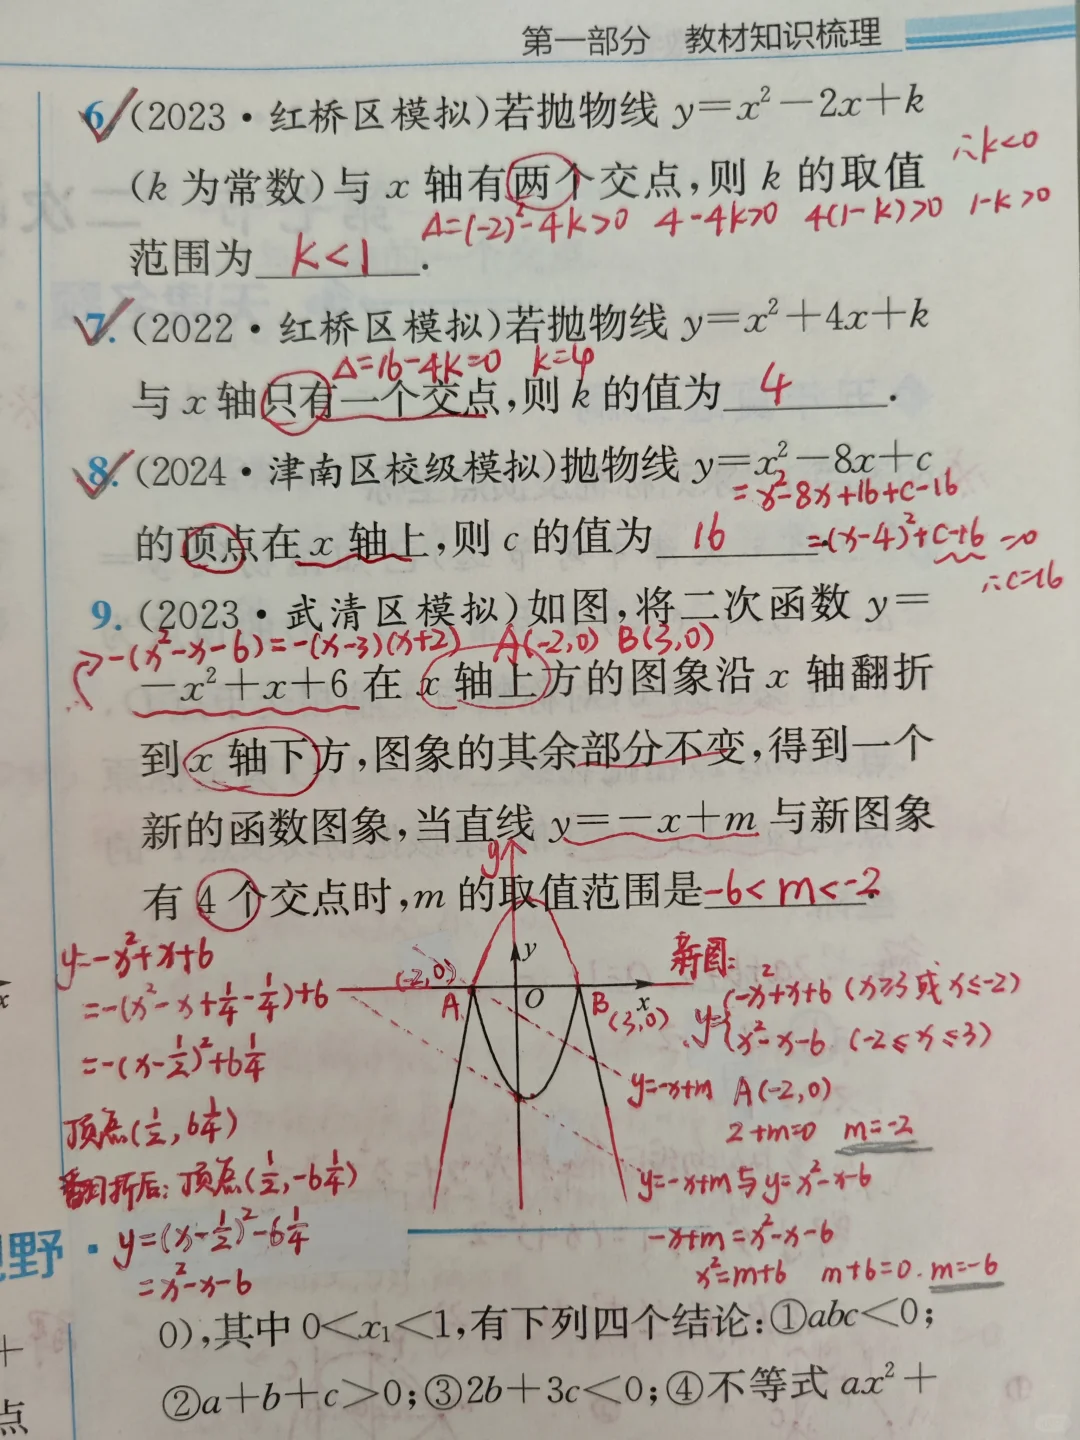 第一部分 教材知识梳理
6. (2023·红桥区模拟)若抛物线 y=x²-2x+k
∴k<0
(k 为常数)与 x 轴有两个交点,则 k 的取值
Δ=(-2)²-4k>0 4-4k>0 4(1-k)>0 1-k>0
范围为 k<1 .
7. (2022·红桥区模拟)若抛物线 y=x²+4x+k
Δ=16-4k=0 k=4
与 x 轴只有一个交点,则 k 的值为 4 .
8. (2024·津南区校级模拟)抛物线 y=x²-8x+c
=x²-8x+16+c-16
的顶点在 x 轴上,则 c 的值为 16 .
=(x-4)²+c-16 →0
∴c=16
9. (2023·武清区模拟)如图,将二次函数 y=
-(x²-x-6)=-(x-3)(x+2) A(-2,0) B(3,0)
-x²+x+6 在 x 轴上方的图象沿 x 轴翻折
到 x 轴下方,图象的其余部分不变,得到一个
新的函数图象,当直线 y=-x+m 与新图象
有 4 个交点时,m 的取值范围是 -6<m<-2 .
y
y=-x²+x+6
=-(x²-x+1/4-1/4)+6
=-(x-1/2)²+6 1/4
顶点(1/2,6 1/4)
翻折后:顶点(1/2,-6 1/4)
y=(x-1/2)²-6 1/4
=x²-x-6
y
(-2,0)
A
O
B
x
(3,0)
新图:
y={-x²+x+6 (x≥3 或 x≤-2)
x²-x-6 (-2≤x≤3)
y=-x+m A(-2,0)
2+m=0 m=-2
y=-x+m与y=x²-x-6
-x+m=x²-x-6
x²=m+6 m+6=0. m=-6
视野·
0),其中 0<x₁<1,有下列四个结论:①abc<0;
②a+b+c>0;③2b+3c<0;④不等式 ax²+
x
+
点